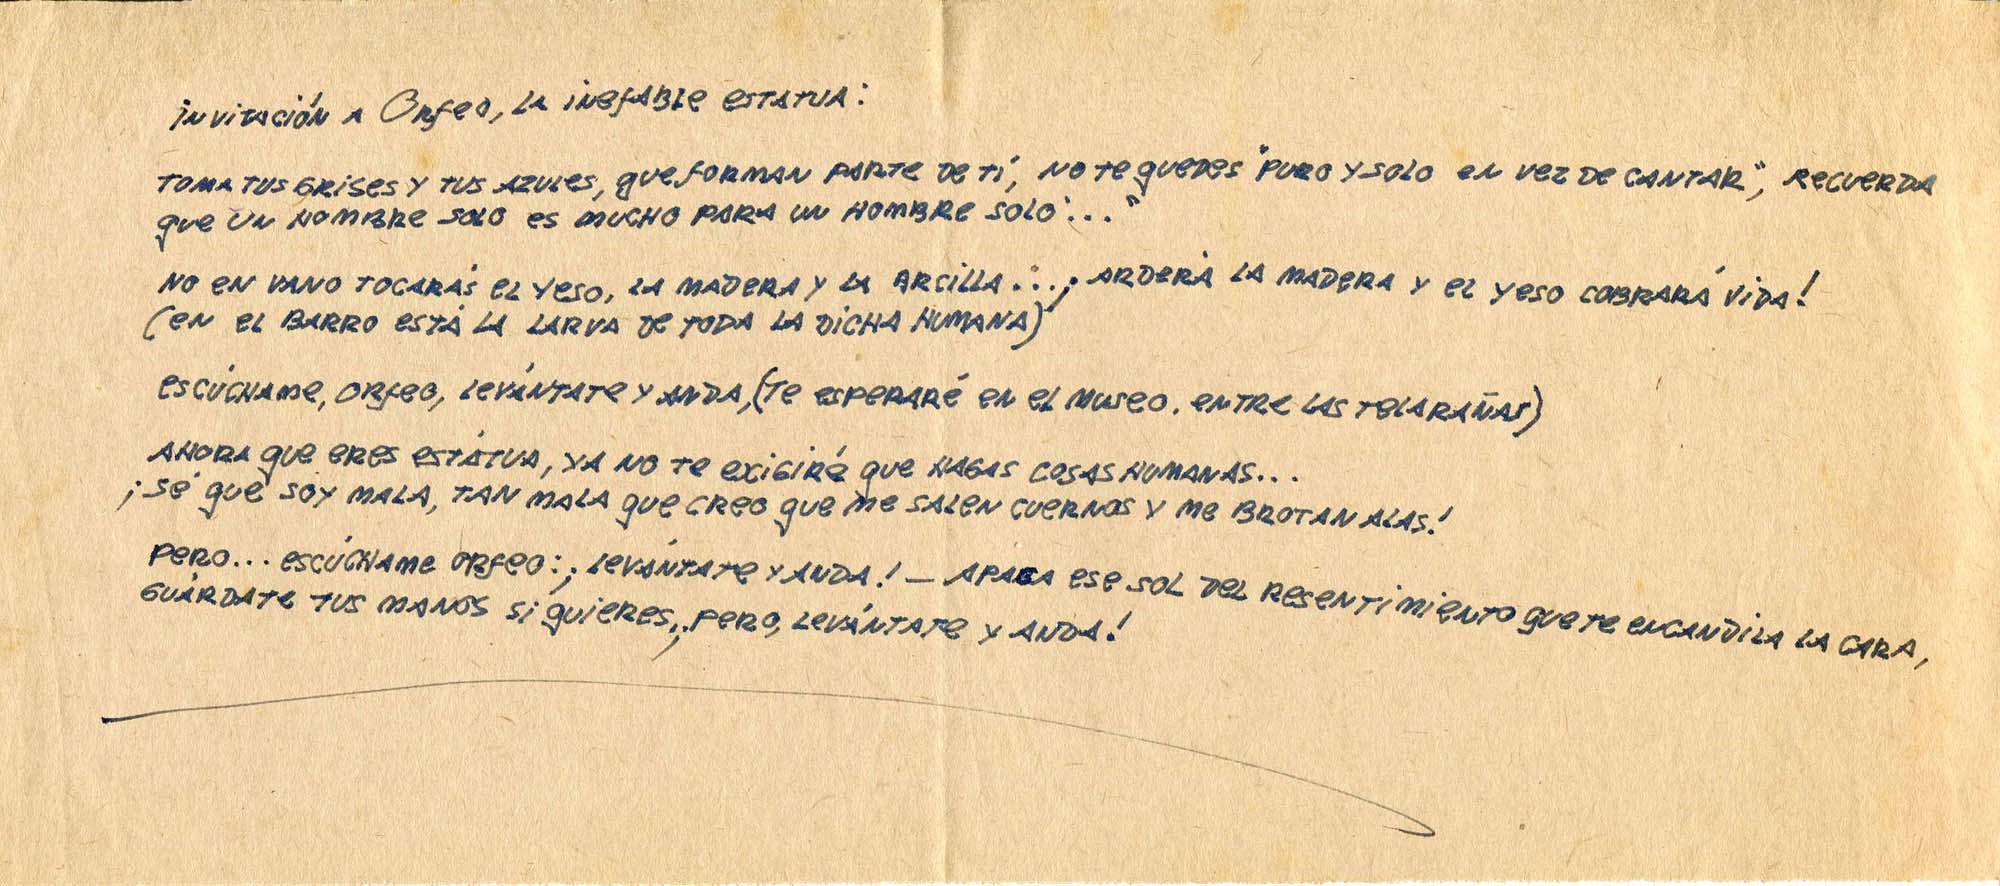 invitación a Orfeo, la inefable estatua:
toma tus grises y tus azules, que forman parte de tí, no te quedes "puro y solo en vez de cantar", recuerda
que un hombre solo es mucho para un hombre solo..."
no en vano tocarás el yeso, la madera y la arcilla...¡arderá la madera y el yeso cobrará vida!
(en el barro está la larva de toda la dicha humana)
escúchame, Orfeo, levántate y anda, (te esperaré en el museo. entre las telarañas)
ahora que eres estátua, ya no te exigiré que hagas cosas humanas...
¡sé que soy mala, tan mala que creo que me salen cuernos y me brotan alas!
pero... escúchame Orfeo: ¡levántate y anda! — apaga ese sol del resentimiento que te encandila la cara,
guárdate tus manos si quieres, ¡pero, levántate y anda!